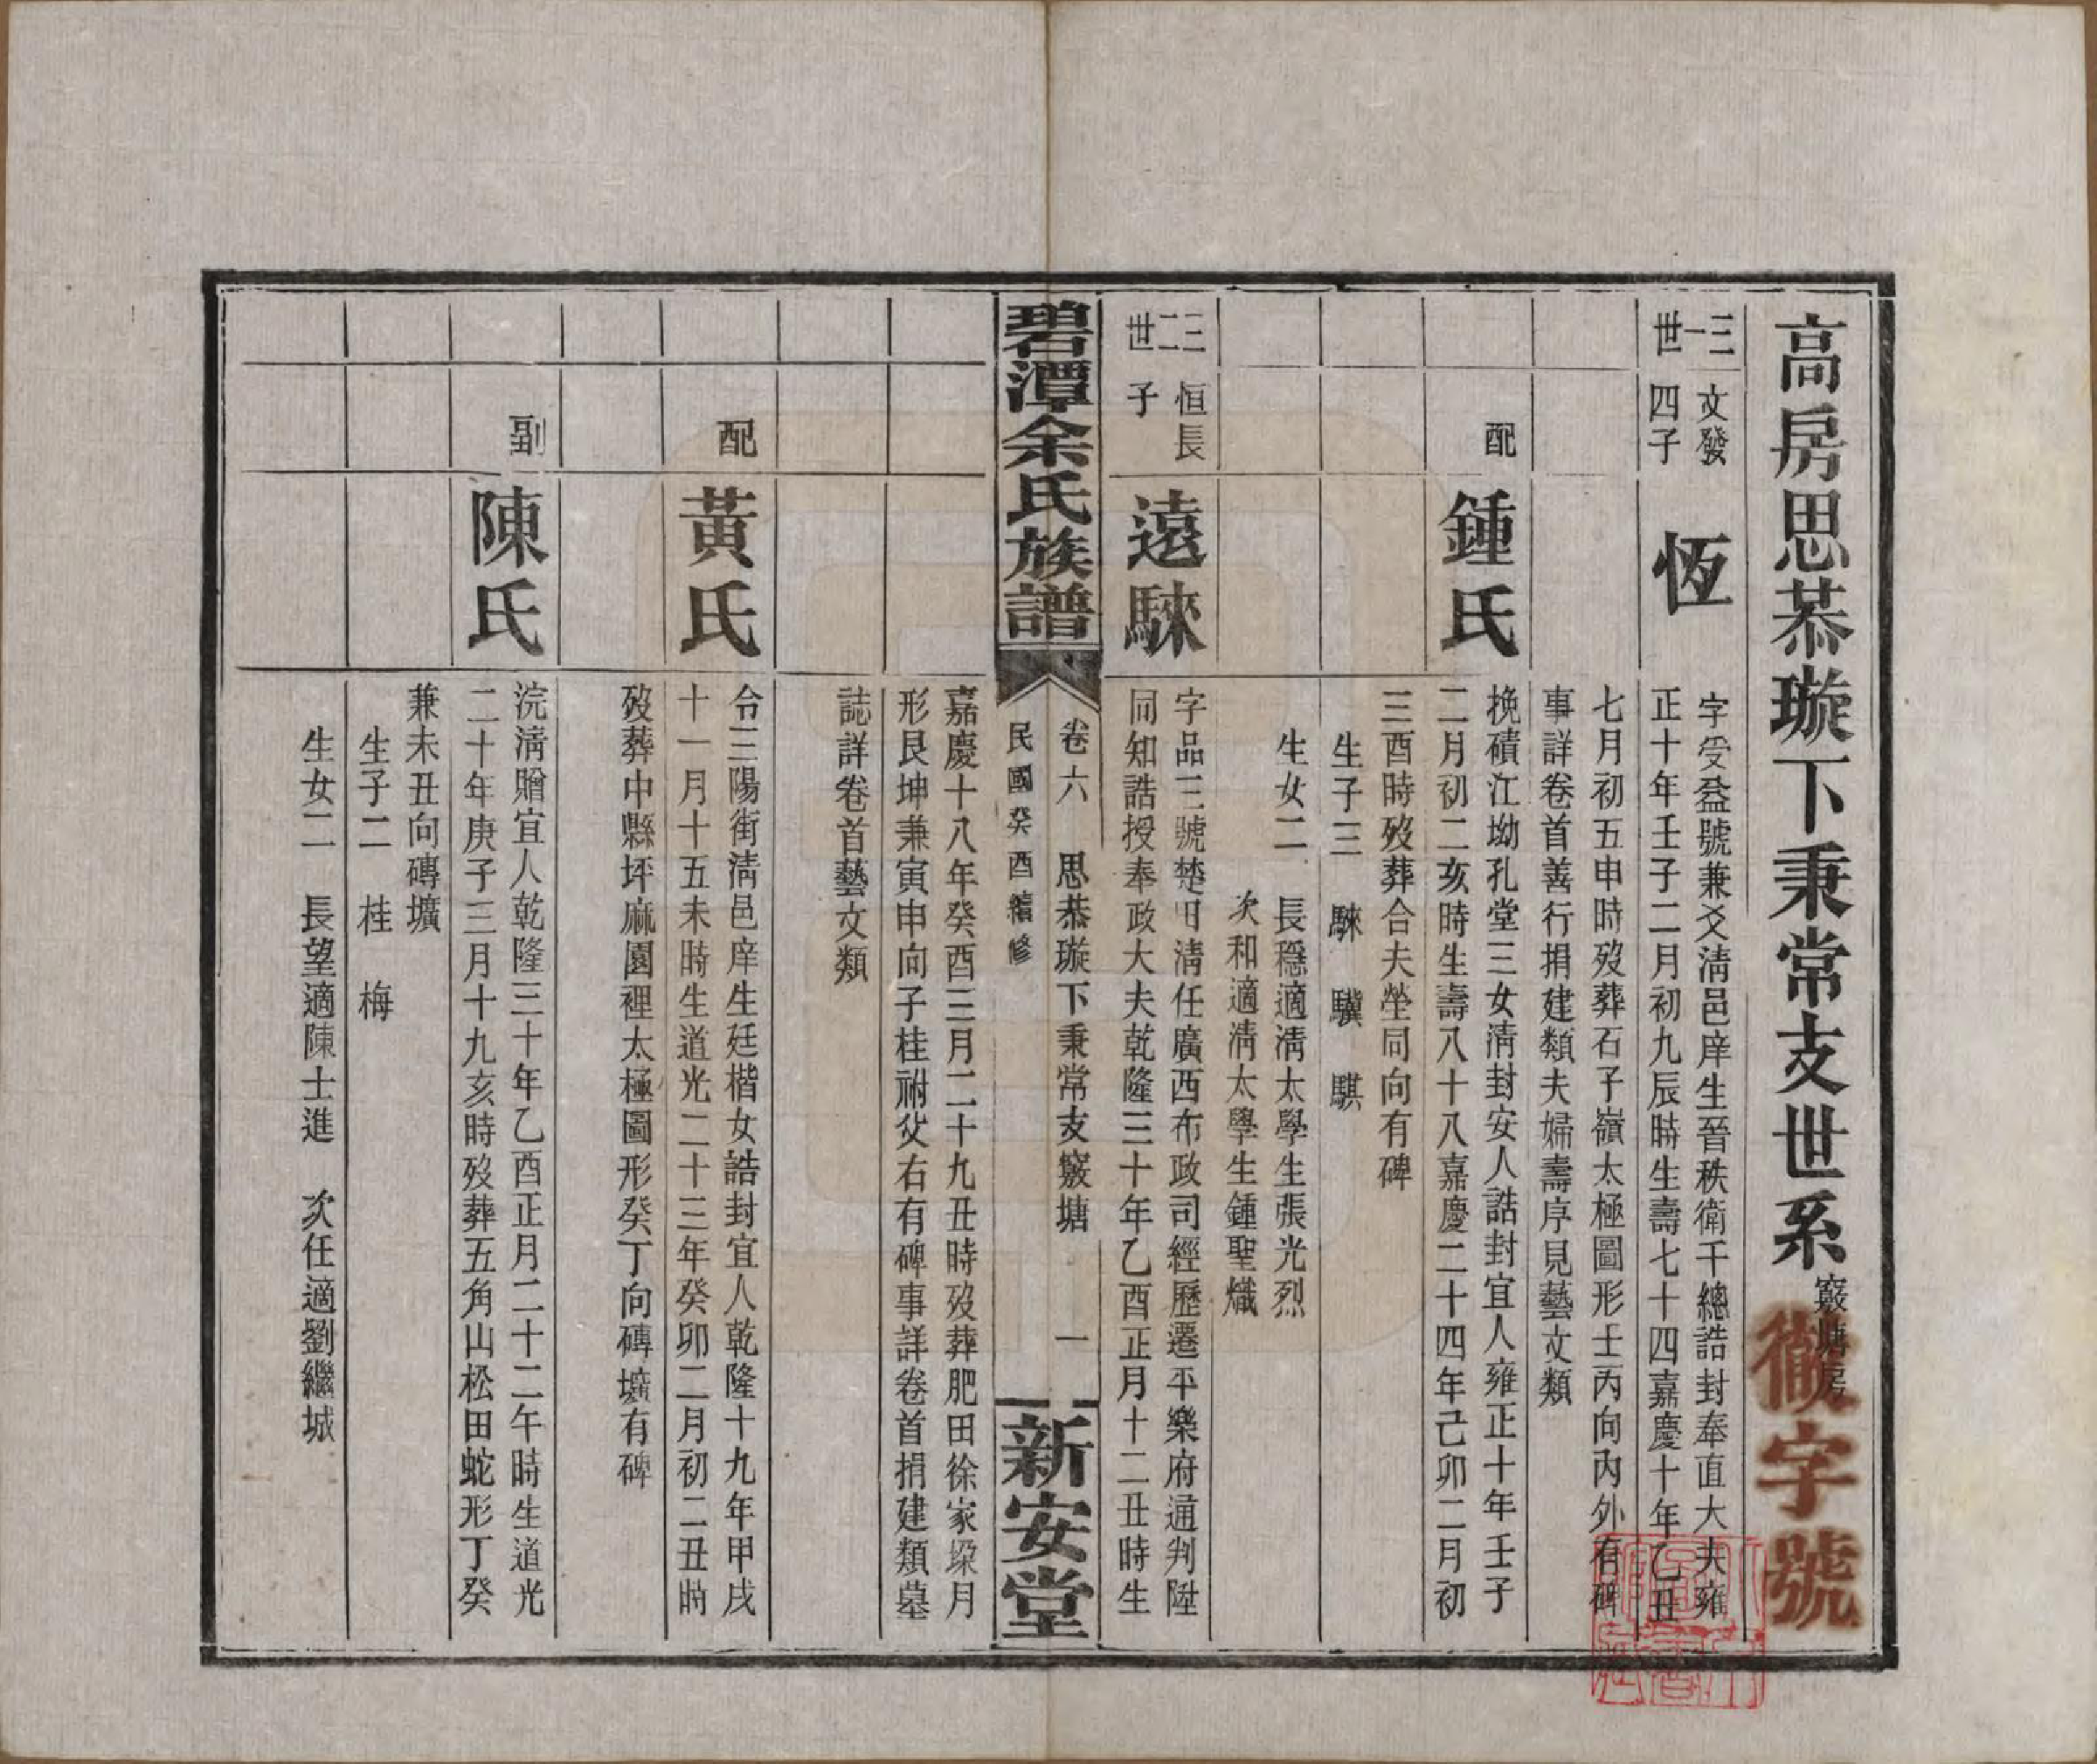 高房思恭璇下秉常支世系 竅塘房
徹字號
三一世
文發四子
恆
字受益號兼爻清邑庠生晉秩衛千總誥封奉直大夫雍
正十年壬子二月初九辰時生壽七十四嘉慶十年乙丑
七月初五申時歿葬石子嶺太極圖形壬丙向內外有碑
事詳卷首善行捐建類夫婦壽序見藝文類
配
鍾氏
挽磧江坳孔堂三女清封安人誥封宜人雍正十年壬子
二月初二亥時生壽八十八嘉慶二十四年己卯二月初
三酉時歿葬合夫塋同向有碑
生子三 騋 驥 騏
生女二 長穩適清太學生張光烈
次和適清太學生鍾聖熾
三二世
恒長子
遠騋
字品三號楚田清任廣西布政司經歷遷平樂府通判陞
同知誥授奉政大夫乾隆三十年乙酉正月十二丑時生
碧潭余氏族譜
卷六 思恭璇下秉常支竅塘 一
民國癸酉續修
新安堂
嘉慶十八年癸酉三月二十九丑時歿葬肥田徐家垛月
形艮坤兼寅申向子桂祔父右有碑事詳卷首捐建類墓
誌詳卷首藝文類
配
黃氏
令三陽街清邑庠生廷楷女誥封宜人乾隆十九年甲戌
十一月十五未時生道光二十三年癸卯二月初二丑時
歿葬中縣坪麻園裡太極圖形癸丁向磚壙有碑
副
陳氏
浣清贈宜人乾隆三十年乙酉正月二十二午時生道光
二十年庚子三月十九亥時歿葬五角山松田蛇形丁癸
兼未丑向磚壙
生子二 桂 梅
生女二 長望適陳士進 次任適劉繼城